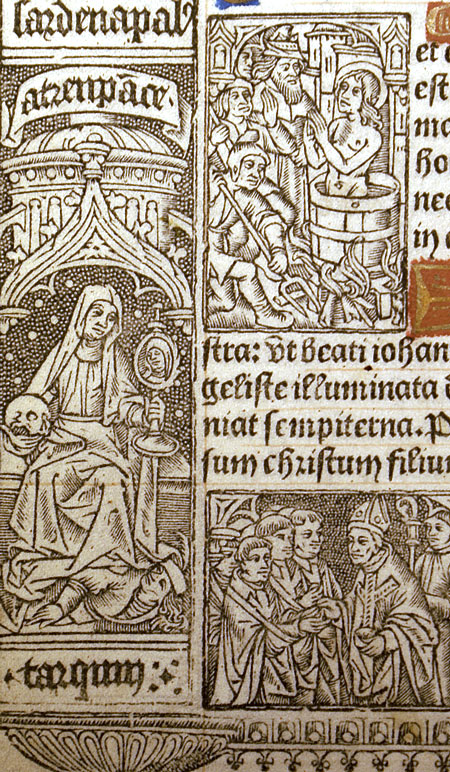 sardenapalꝰ
atrenpāce.
tarquin
et
est
ma
ho
nec
in
stra: Ut beati iohan
geliste illuminata
niat sempiterna. P
sum christum filiu